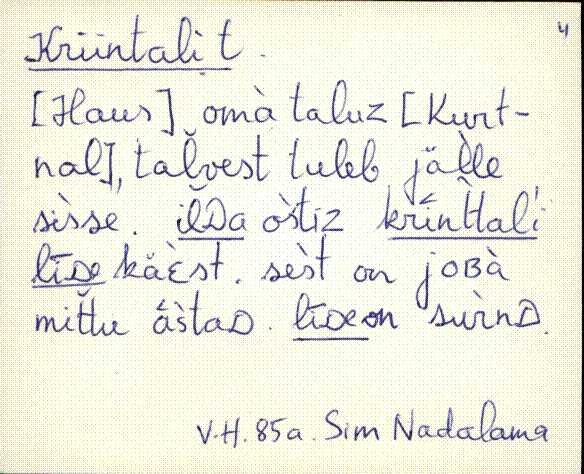 4
Kriintali t.
[Haus] omà taluz [Kurt-
nal], talvest tuleb jälle
sìsse. ilDa òstiz krinttali
līDe käest. sèst on joBà
mittu āstaD. līDe on sùrnD.
V.H. 85a. Sim Nadalama